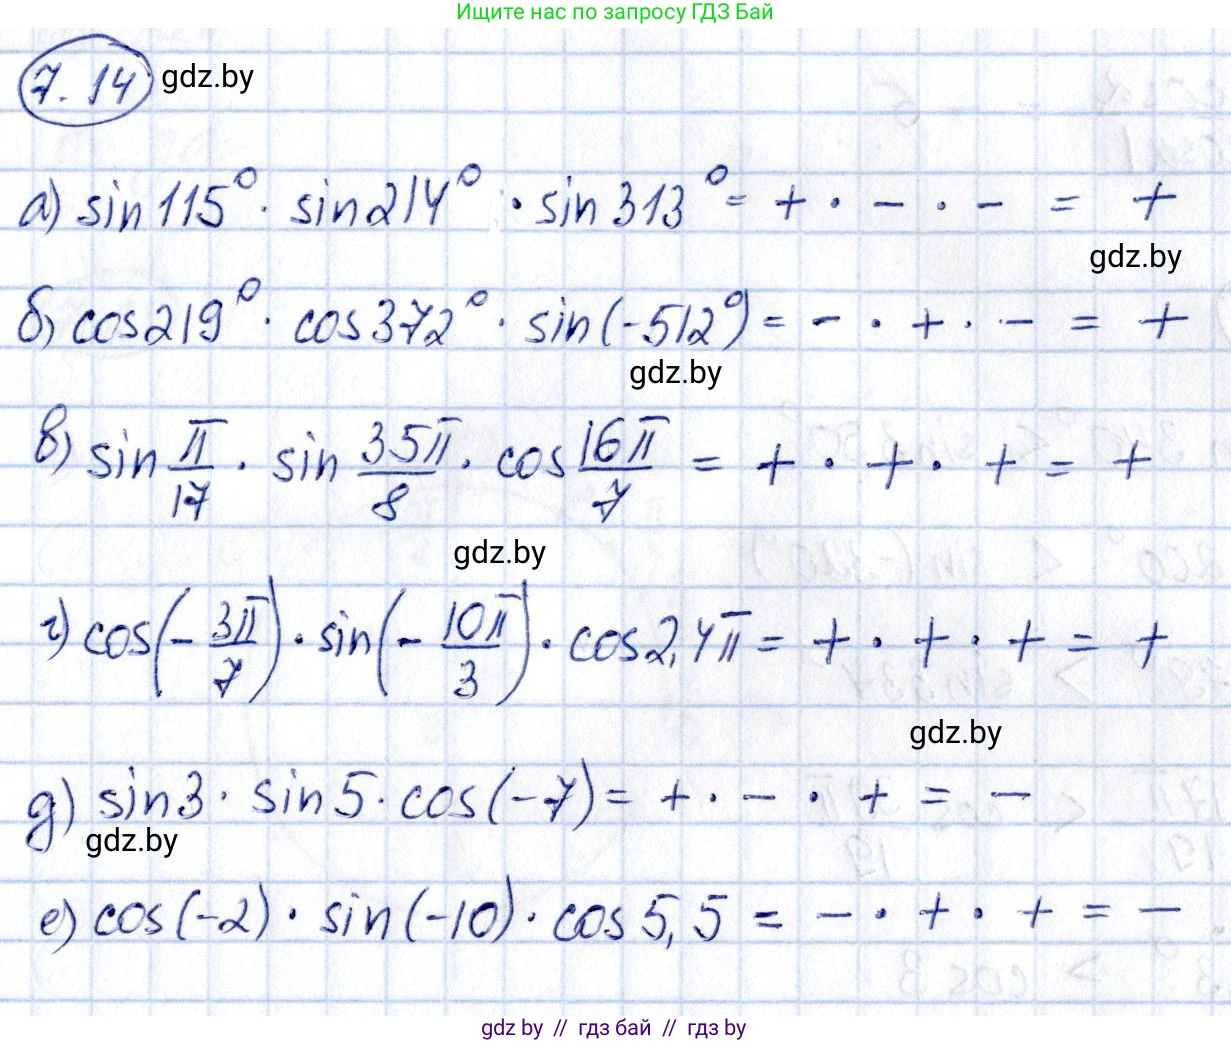 Ищите нас по запросу ГДЗ Бай
7.14 gdz.by
а) sin115° · sin214° · sin313° = + · − · − = +
gdz.by
б) cos219° · cos372° · sin(−512°) = − · + · − = +
gdz.by
в) sin π/17 · sin 35π/8 · cos 16π/7 = + · + · + = +
gdz.by
г) cos(−3π/7) · sin(−10π/3) · cos2,4π = + · + · + = +
gdz.by
д) sin3 · sin5 · cos(−7) = + · − · + = −
gdz.by
е) cos(−2) · sin(−10) · cos5,5 = − · + · + = −
gdz by // гдз бай // gdz by